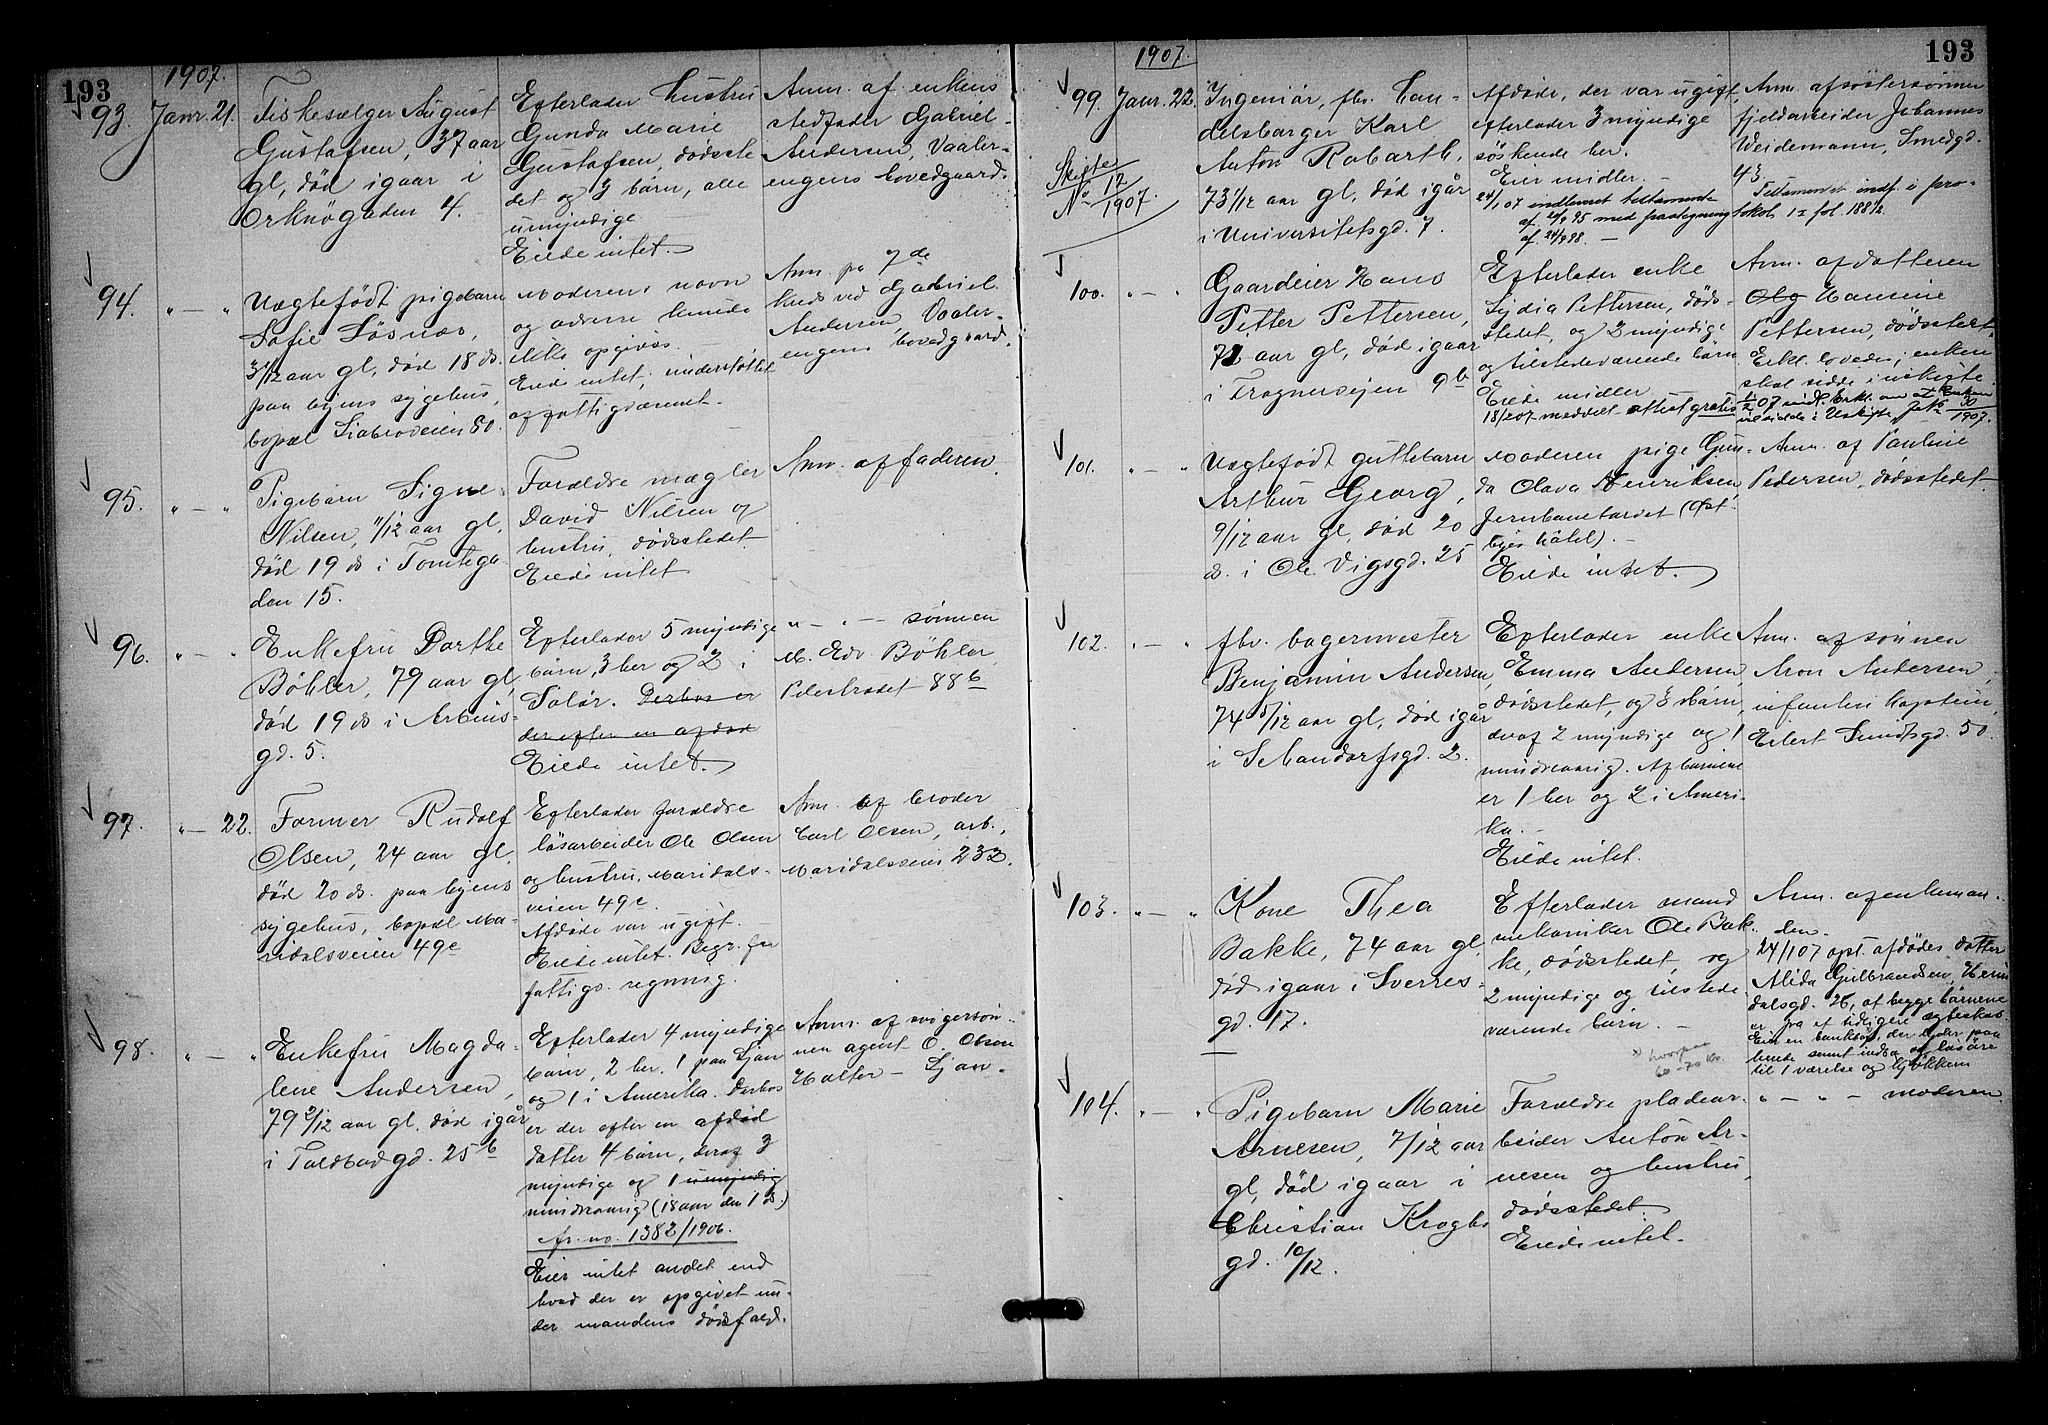 193
1907.
93.
Janr. 21.
Fiskesælger August
Gustafsen, 37 aar
gl, død igaar i
Orknøgaden 4.
Efterlader hustru
Gunda Marie
Gustafsen, dødsste
det og 3 børn, alle
umyndige
Eiede intet.
Anm. af enkens
stedfader Gabriel
Andersen, Vaaler-
engens hovedgaard.
94.
" — "
Uægtefødt pigebarn
Sofie Løsnæs,
3/12 aar gl, død 18 ds.
paa byens sygehus,
bopæl Siebroveien 80.
Moderens navn
og adresse kunde
ikke opgives.
Eiede intet, understøttet
af fattigvæsenet.
Anm. pr 7de
kreds ved Gabriel
Andersen, Vaaler-
engens hovedgaard.
95.
" — "
Pigebarn Signe
Nilsen, 11/12 aar gl.
død 19 ds i Tomtega
den 15.
Forældre mægler
David Nilsen og
hustru, dødsstedet.
Eiede intet
Anm. af faderen.
96.
" — "
Enkefru Dorthe
Bøhler, 79 aar gl,
død 19 ds i Arbeins-
gd. 5.
Efterlader 5 myndige
børn, 3 her og 2 i
Solør. Derhos er
der efter en afdød
Eiede intet.
" — " — sønnen
M. Edv. Bøhler,
Pilestrædet 88b
97.
" — 22.
Former Rudolf
Olsen, 24 aar gl,
død 20 ds. paa byens
sygehus, bopæl Ma-
ridalsveien 49c
Efterlader forældre
løsarbeider Ole Olsen
og hustru, Maridals-
veien 49c.
Afdøde var ugift.
Eiede intet. Begr. for
fattigv. regning.
Anm. af broder
Carl Olsen, arb.,
Maridalsveien 232.
98.
" — "
Enkefru Magda-
lene Andersen,
79 2/12 aar gl. død igår
i Toldbodgd. 25b
Efterlader 4 myndige
børn, 2 her, 1 paa Ljan
og 1 i Amerika. Derhos
er der efter en afdød
datter 4 børn, deraf 3
myndige og 1 umyndig
mindreaarig (18 aar den 1 ds.)
fr. no. 1382/1906.
Eier intet andet end
hvad der er opgivet un-
der mandens dødsfald.
Anm. af svigersøn-
nen agent O. Olsen
Holter — Ljan.
193
1907.
99.
Janr. 22.
Skifte
No 12
1907.
Ingeniør, fhv. han-
delsborger Karl
Anton Robarth,
73 1/12 aar gl, død igår
i Universitetsgd. 7.
Afdøde, der var ugift,
efterlader 3 myndige
søskende her.
Eier midler. —
24/1 07 indleveret testamente
af 2/9 95 med paategning
af 24/9 98. —
Anm. af søstersønnen
fjeldarbeider Johannes
Weidemann, Smedgd.
43.
Testamentet indf. i pro-
tokol 12 fol. 188 1/2.
100.
" — "
Gaardeier Hans
Petter Pettersen,
72 aar gl, død igaar
i Frognerveien 9b
Efterlader enke
Lydia Pettersen, døds-
stedet, og 2 myndige
og tilstedeværende børn
Eiede midler
18/2 07 meddelt attest gratis
Anm. af datteren
Olg Hansine
Pettersen, dødsstedet.
Erkl. lovedes, enken
skal sidde i uskifte
07 indl. Erkl. om at Enken
vil sidde i Uskifte
1907.
101.
" — "
Uægtefødt guttebarn
Arthur Georg,
9/12 aar gl, død 20
ds. i Ole Vigsgd. 25
Moderen pige Gun-
da Olava Henriksen,
Jernbanetorvet (Øst
byes hotel). —
Eiede intet.
Anm. af Pauline
Pedersen, dødsstedet
102.
" — "
fhv. bagermester
Benjamin Andersen,
74 5/12 aar gl, død igår
i Schandorfsgd. 2.
Efterlader enke
Emma Andersen,
dødsstedet, og 3 børn,
deraf 2 myndige og 1
mindreaarig. Af børnene
er 1 her og 2 i Ameri-
ka. —
Eiede intet.
Anm. af sønnen
Aron Andersen,
infanteri kaptein,
Eilert Sundtsgd. 50.
103.
" — "
Kone Thea
Bakke, 74 aar gl,
død igaar i Sverres-
gd. 17.
Efterlader mand
mekaniker Ole Bak-
ke, dødsstedet, og
2 myndige og tilstede
værende børn. —
Anm. af enkeman-
den.
24/1 07 opl. afdødes datter
Alida Gulbrandsen, Herm
dalsgd. 26, at begge børnene
er fra et tidligere ægteskab
Eier en bankbog, der lyder paa
hende samt indbo og løsøre
til 1 værelse og kjøkken
60-70 Kr.
104.
" — "
Pigebarn Marie
Arnesen, 7/12 aar
gl, død igaar i
Christian Kroghs
gd. 10/12.
Forældre pladear-
beider Anton Ar-
nesen og hustru,
dødsstedet.
Eiede intet.
" — " — moderen.